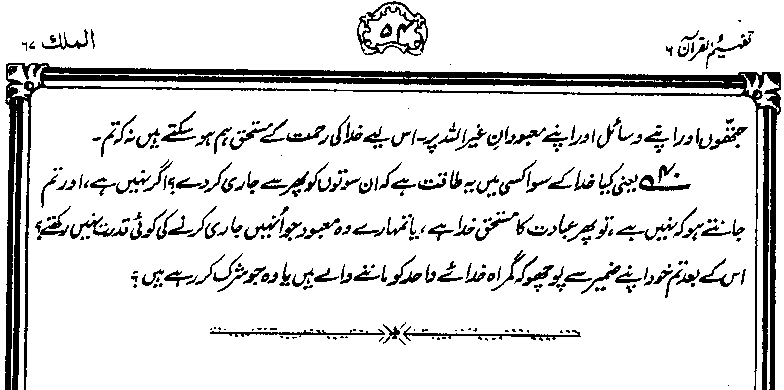 تفہیم القرآن ۶
۵۴
الملک ۶۷
جتھوں اور اپنے وسائل اور اپنے معبودانِ غیر اللہ پر۔ اس لیے خدا کی رحمت کے مستحق ہم ہو سکتے ہیں نہ کہ تم۔
۴۰؎ یعنی کیا خدا کے سوا کسی میں یہ طاقت ہے کہ ان سوتوں کو پھر سے جاری کر دے؟ اگر نہیں ہے، اور تم
جانتے ہو کہ نہیں ہے، تو پھر عبادت کا مستحق خدا ہے، یا تمہارے وہ معبود جو اُنہیں جاری کرنے کی کوئی قدرت نہیں رکھتے؟
اس کے بعد تم خود اپنے ضمیر سے پوچھو کہ گمراہ خدائے واحد کو ماننے والے ہیں یا وہ جو شرک کر رہے ہیں؟